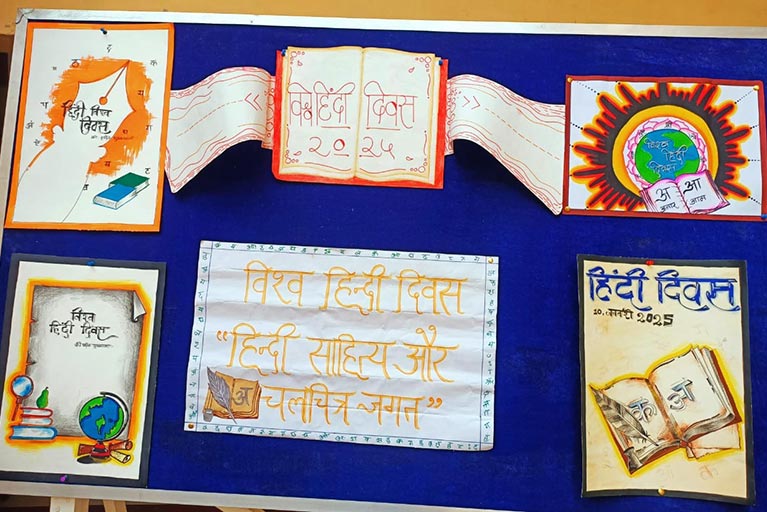 हिंदी विश्व
दिवस
विश्व हिंदी दिवस
२०२५
विश्व
हिंदी
दिवस
अ आ
अनार आम
विश्व
हिंदी दिवस
विश्व हिन्दी दिवस
"हिन्दी साहित्य और
चलचित्र जगत"
अ
हिंदी दिवस
10 जनवरी 2025
क अ